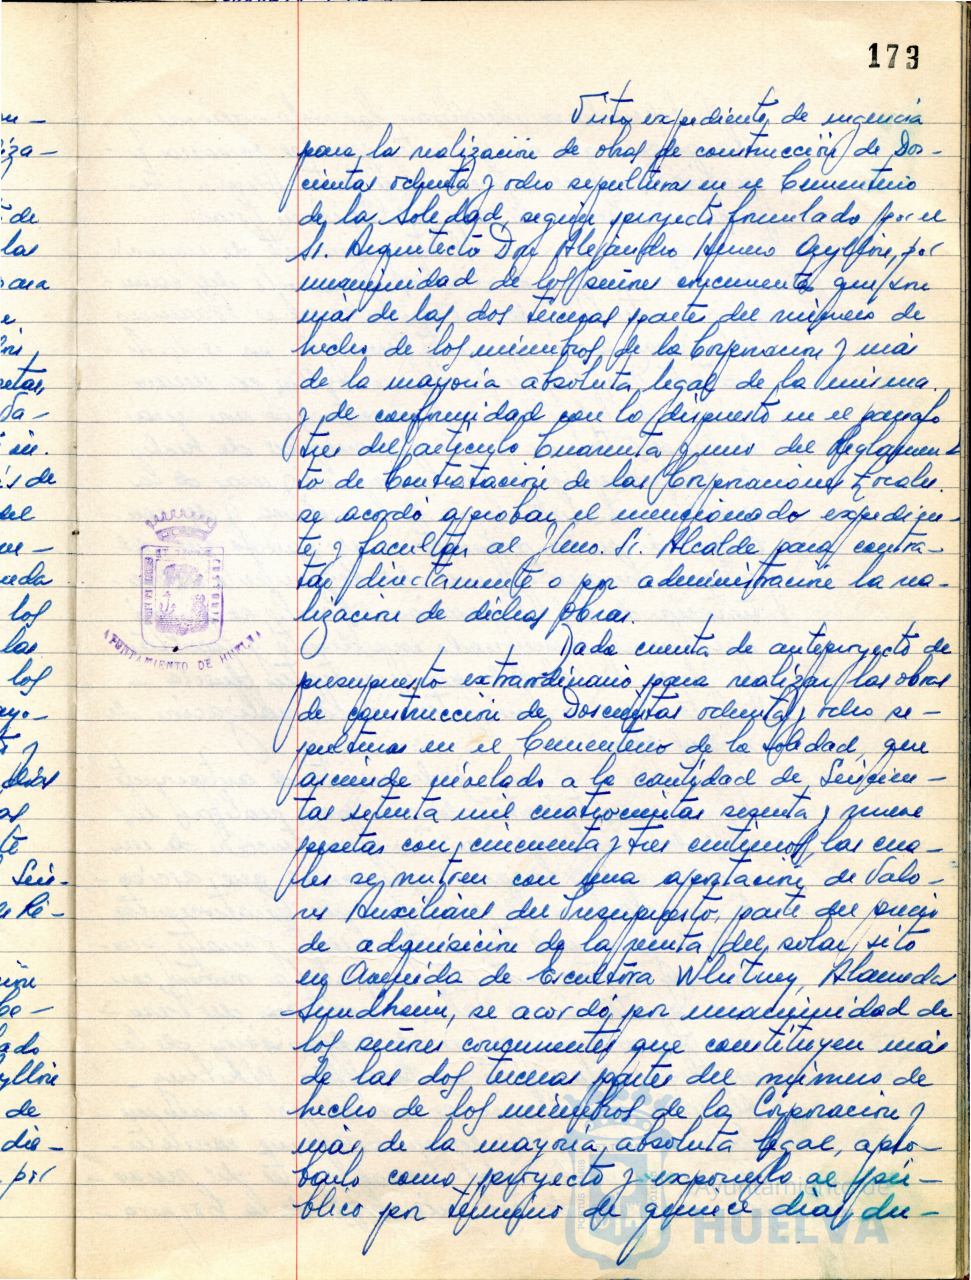 173
Visto expediente de urgencia
para la realización de obras de construcción de Dos-
cientas ochenta y ocho sepulturas en el Cementerio
de la Soledad, según proyecto formulado por el
Sr. Arquitecto Don Alejandro Herrero Ayllón, por
unanimidad de los señores concurrentes que son
más de las dos terceras partes del número de
hecho de los miembros de la Corporación y más
de la mayoría absoluta legal de la misma.
y de conformidad con lo dispuesto en el párrafo
tres del artículo Cuarenta y uno del Reglamen-
to de Contratación de las Corporaciones Locales.
se acordó aprobar el mencionado expedien-
te, y facultar al Iltmo. Sr. Alcalde para contra-
tar directamente o por administración la rea-
lización de dichas obras.
Dada cuenta de anteproyecto de
presupuesto extraordinario para realizar las obras
de construcción de Doscientas ochenta y ocho se-
pulturas en el Cementerio de la Soledad, que
asciende nivelado a la cantidad de Seiscien-
tas setenta mil cuatrocientas sesenta y nueve
pesetas con cincuenta y tres céntimos, las cua-
les se nutren con una aportación de Valo-
res Auxiliares del Presupuesto, parte del precio
de adquisición de la venta del solar sito
en Avenida de Escultora Whitney, Alameda
Sundheim, se acordó, por unanimidad de
los señores concurrentes que constituyen más
de las dos terceras partes del número de
hecho de los miembros de la Corporación y
más de la mayoría absoluta legal, apro-
barlo como proyecto y exponerlo al pú-
blico por término de quince días, du-
AYUNTAMIENTO DE HUELVA
Ayuntamiento de
HUELVA